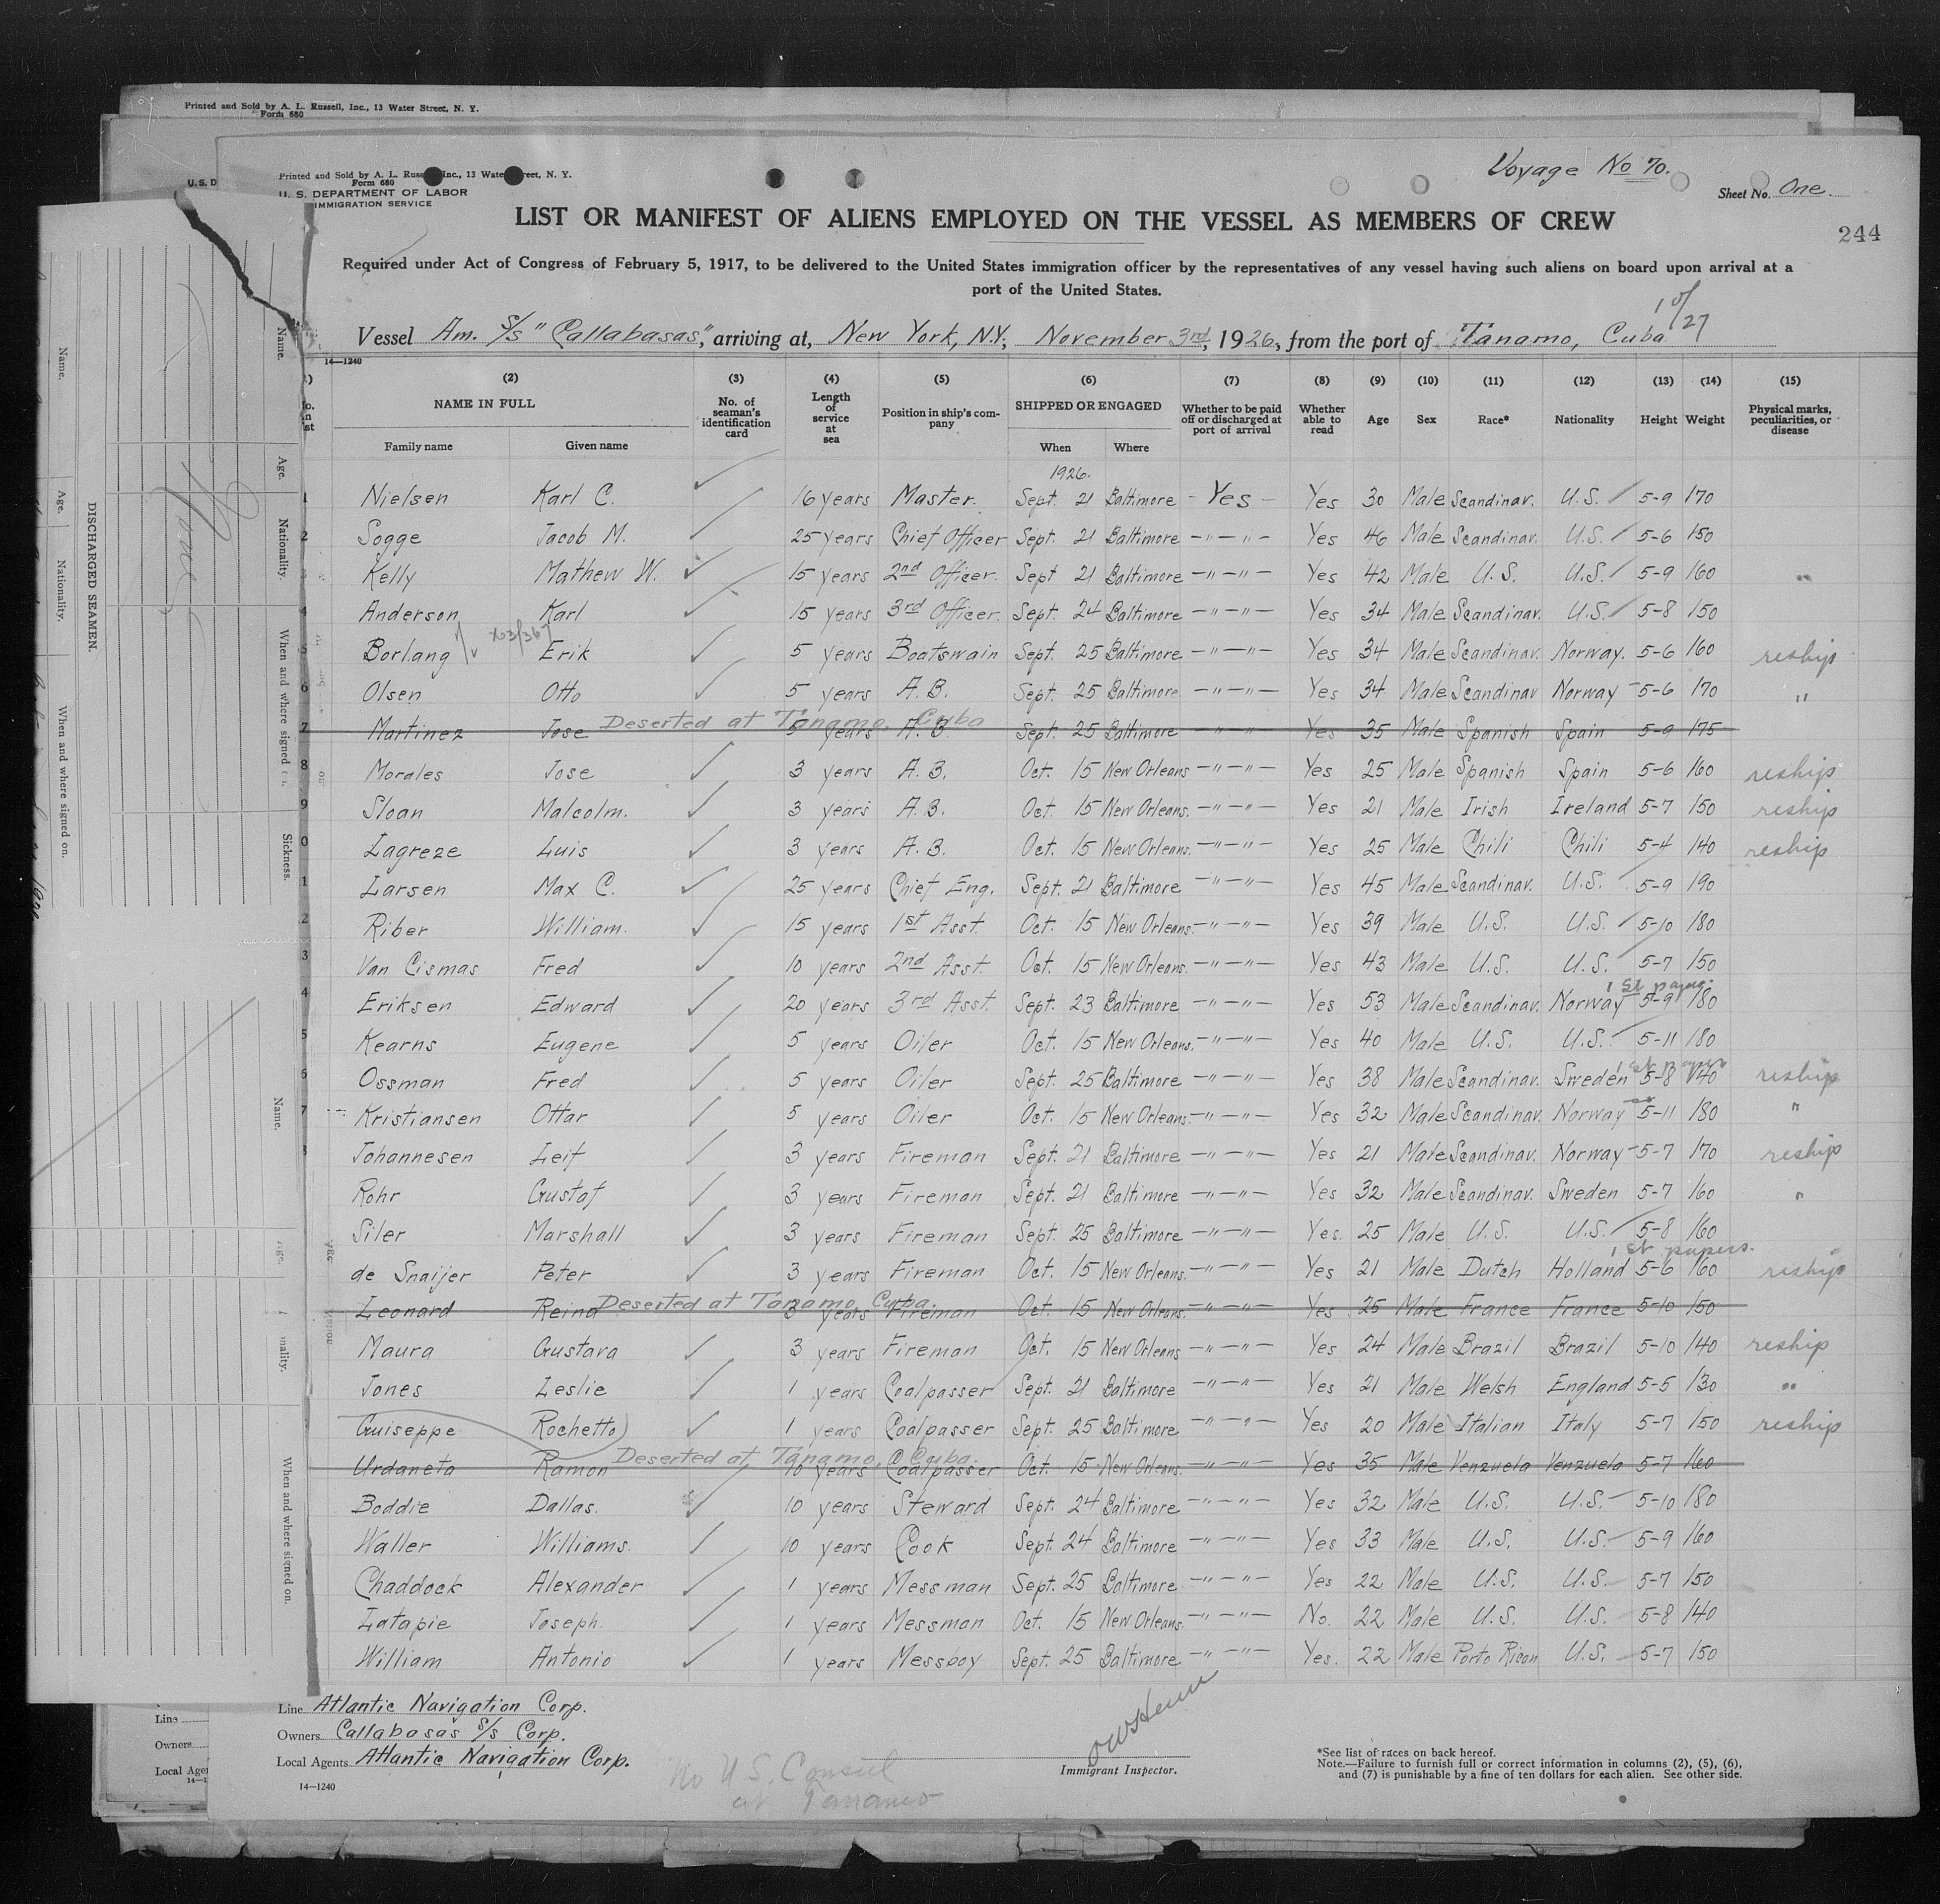 Printed and Sold by A. L. Russell, Inc., 13 Water Street, N. Y.
Form 680
Printed and Sold by A. L. Russell, Inc., 13 Water Street, N. Y.
Form 680
U. S. D
U. S. DEPARTMENT OF LABOR
IMMIGRATION SERVICE
Voyage No 70.
Sheet No. One.
LIST OR MANIFEST OF ALIENS EMPLOYED ON THE VESSEL AS MEMBERS OF CREW
244
Required under Act of Congress of February 5, 1917, to be delivered to the United States immigration officer by the representatives of any vessel having such aliens on board upon arrival at a
port of the United States.
Vessel Am. S/s "Callabasas", arriving at, New York, N.Y., November 3rd, 1926, from the port of Tanamo, Cuba
14—1240
(2) (3) (4) (5) (6) (7) (8) (9) (10) (11) (12) (13) (14) (15)
NAME IN FULL No. of seaman's identification card Length of service at sea Position in ship's company SHIPPED OR ENGAGED Whether to be paid off or discharged at port of arrival Whether able to read Age Sex Race* Nationality Height Weight Physical marks, peculiarities, or disease
Family name Given name When Where
1926.
1 Nielsen Karl C. 16 years Master. Sept. 21 Baltimore - Yes - Yes 30 Male Scandinav. U.S. 5-9 170
2 Sogge Jacob M. 25 years Chief Officer Sept. 21 Baltimore — " — " — Yes 46 Male Scandinav. U.S. 5-6 150
Kelly Mathew W. 15 years 2nd Officer. Sept 21 Baltimore — " — " — Yes 42 Male U.S. U.S. 5-9 160 "
4 Anderson Karl 15 years 3rd Officer. Sept. 24 Baltimore — " — " — Yes 34 Male Scandinav. U.S. 5-8 150
5 Borlang Erik 5 years Boatswain Sept. 25 Baltimore — " — " — Yes 34 Male Scandinav. Norway. 5-6 160 reship
6 Olsen Otto 5 years A.B. Sept. 25 Baltimore — " — " — Yes 34 Male Scandinav Norway 5-6 170 "
Deserted at Tanamo, Cuba
7 Martinez Jose 5 years A.B. Sept. 25 Baltimore — " — " — Yes 35 Male Spanish Spain 5-9 175
8 Morales Jose 3 years A.B. Oct. 15 New Orleans — " — " — Yes 25 Male Spanish Spain 5-6 160 reship
9 Sloan Malcolm. 3 years A.B. Oct. 15 New Orleans. — " — " — Yes 21 Male Irish Ireland 5-7 150 reship
0 Lagreze Luis 3 years A.B. Oct. 15 New Orleans. — " — " — Yes 25 Male Chili Chili 5-4 140 reship
1 Larsen Max C. 25 years Chief Eng. Sept. 21 Baltimore — " — " — Yes 45 Male Scandinav. U.S. 5-9 190
2 Riber William. 15 years 1st Asst. Oct. 15 New Orleans. — " — " — Yes 39 Male U.S. U.S. 5-10 180
3 Van Cismas Fred 10 years 2nd Asst. Oct. 15 New Orleans. — " — " — Yes 43 Male U.S. U.S. 5-7 150
4 Eriksen Edward 20 years 3rd Asst. Sept. 23 Baltimore — " — " — Yes 53 Male Scandinav. Norway 5-9 180
5 Kearns Eugene 5 years Oiler Oct. 15 New Orleans. — " — " — Yes 40 Male U.S. U.S. 5-11 180
6 Ossman Fred 5 years Oiler Sept. 25 Baltimore — " — " — Yes 38 Male Scandinav. Sweden 5-8 140 reship
7 Kristiansen Ottar 5 years Oiler Oct. 15 New Orleans. — " — " — Yes 32 Male Scandinav. Norway 5-11 180 "
Johannesen Leif 3 years Fireman Sept. 21 Baltimore — " — " — Yes 21 Male Scandinav. Norway 5-7 170 reship
Rohr Gustaf 3 years Fireman Sept. 21 Baltimore — " — " — Yes 32 Male Scandinav. Sweden 5-7 160 "
Siler Marshall 3 years Fireman Sept. 25 Baltimore — " — " — Yes. 25 Male U.S. U.S. 5-8 160
1st papers.
de Snaijer Peter 3 years Fireman Oct. 15 New Orleans. — " — " — Yes 21 Male Dutch Holland 5-6 160 reship
Deserted at Tanamo, Cuba.
Leonard Reind 3 years Fireman Oct. 15 New Orleans. — " — " — Yes 25 Male France France 5-10 150
Maura Gustava 3 years Fireman Oct. 15 New Orleans — " — " — Yes 24 Male Brazil Brazil 5-10 140 reship
Jones Leslie 1 years Coalpasser Sept. 21 Baltimore — " — " — Yes 21 Male Welsh England 5-5 130 "
Guiseppe Rochetto 1 years Coalpasser Sept. 25 Baltimore — " — " — Yes 20 Male Italian Italy 5-7 150 reship
Deserted at Tanamo, Cuba.
Urdaneta Ramon 10 years Coalpasser Oct. 15 New Orleans. — " — " — Yes 35 Male Venzuela Venzuela 5-7 160
Boddie Dallas. 10 years Steward Sept. 24 Baltimore — " — " — Yes 32 Male U.S. U.S. 5-10 180
Waller Williams. 10 years Cook Sept. 24 Baltimore — " — " — Yes 33 Male U.S. U.S. 5-9 160
Chaddock Alexander 1 years Messman Sept. 25 Baltimore — " — " — Yes 22 Male U.S. U.S. 5-7 150
Latapie Joseph. 1 years Messman Oct. 15 New Orleans. — " — " — No. 22 Male U.S. U.S. 5-8 140
William Antonio 1 years Messboy Sept. 25 Baltimore — " — " — Yes. 22 Male Porto Rican U.S. 5-7 150
Line Atlantic Navigation Corp.
Owners Callabasas S/s Corp.
Local Agents Atlantic Navigation Corp.
14—1240
No U.S. Consul
at Tanamo
Immigrant Inspector.
*See list of races on back hereof.
Note.—Failure to furnish full or correct information in columns (2), (5), (6),
and (7) is punishable by a fine of ten dollars for each alien. See other side.
Line
Owners
Local Age
DISCHARGED SEAMEN.
Name.
Age.
Nationality.
When and where signed on.
None
Name.
Age.
Nationality.
When and where signed
Sickness.
Name.
When and where signed on.